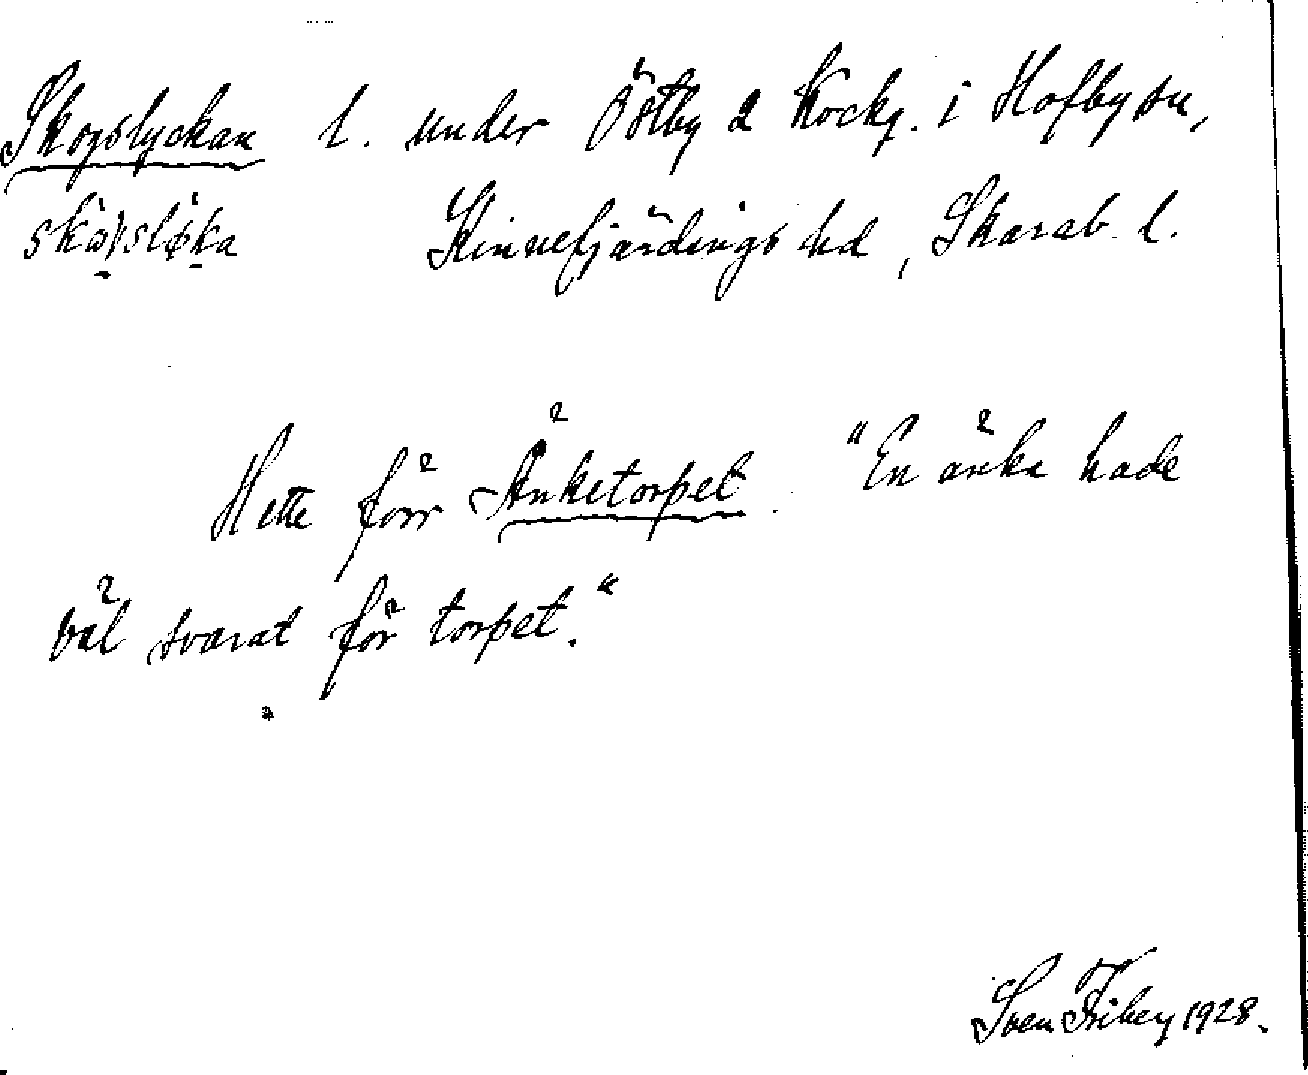 Skogslyckan l. under Östby 2 Kockg. i Hofby sn,
Kinnefjärdings hd, Skarab. l.
Hette förr Änketorpet. "En änka hade
väl svarat för torpet."
Sven Friberg 1928.